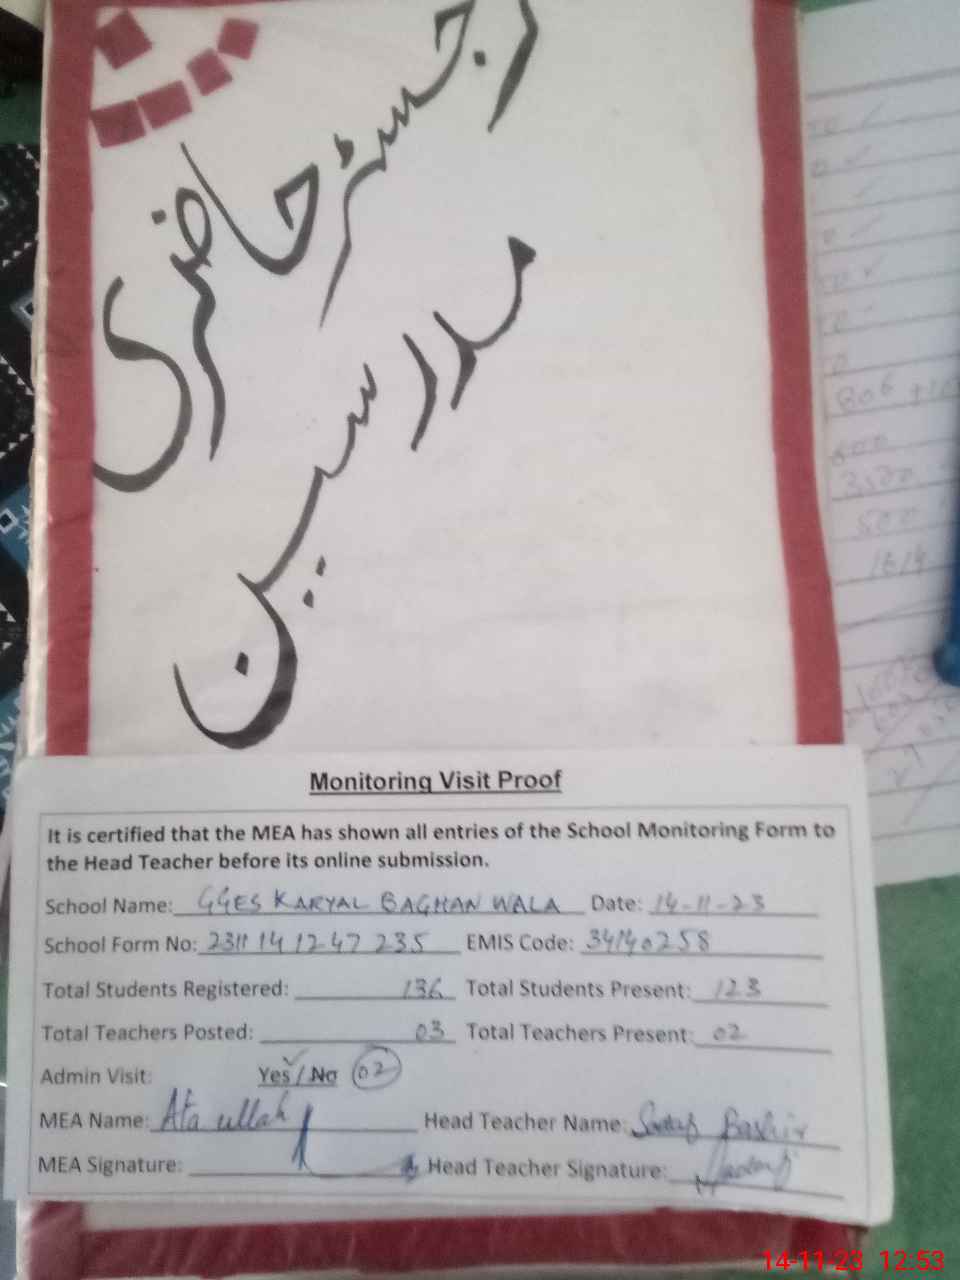 رجسٹر حاضری
مدرسین
Monitoring Visit Proof
It is certified that the MEA has shown all entries of the School Monitoring Form to
the Head Teacher before its online submission.
School Name: GGES KARYAL BAGHAN WALA Date: 14-11-23
School Form No: 2311 14 12 47 235 EMIS Code: 34140258
Total Students Registered: 136 Total Students Present: 123
Total Teachers Posted: 03 Total Teachers Present: 02
Admin Visit: Yes / No 02
MEA Name: Ata ullah Head Teacher Name: Bashir
MEA Signature: Head Teacher Signature:
806 +10
600
500
1614
14-11-23 12:53